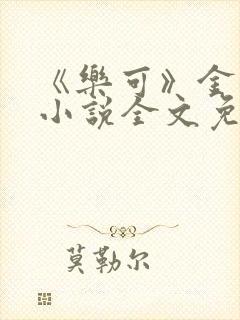 《樂可》金
小說全文免
莫勒尔